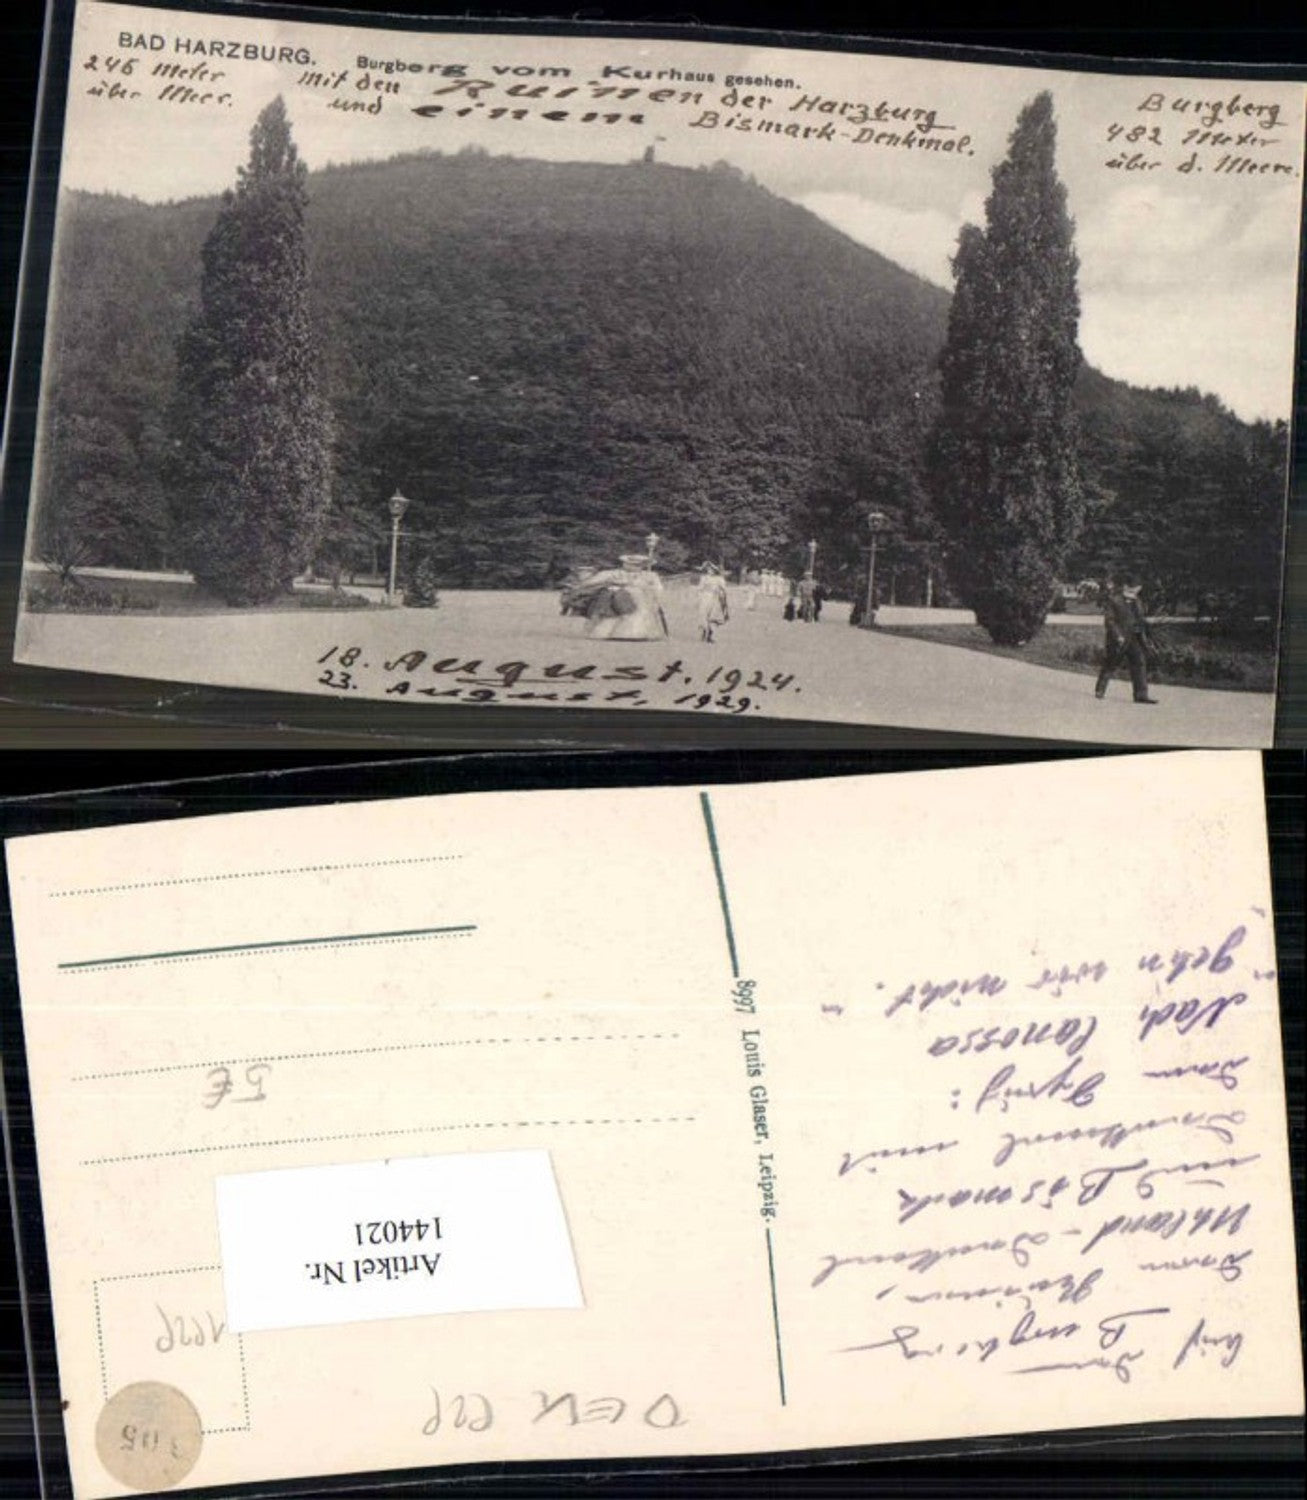 BAD HARZBURG. Burgberg vom Kurhaus gesehen.
246 Meter
über Meer.
mit den Ruinen der Harzburg
und einem Bismark-Denkmal.
Burgberg
482 Meter
über d. Meere.
18. August. 1924.
23. August, 1929.
Auf dem Burgberg
Ruinen,
Uhland-Denkmal
und Bismark
Denkmal mit
dem
Nach Canossa
gehn wir nicht."
8997 Louis Glaser, Leipzig.
5€
Artikel Nr.
144021